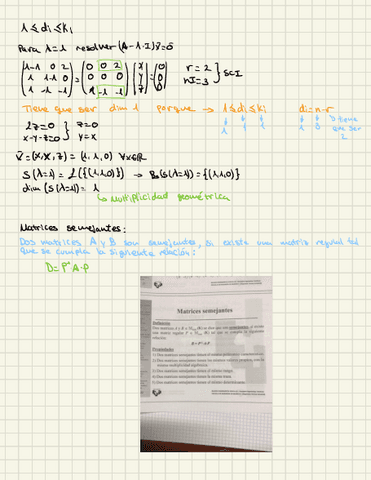 1 ≤ di ≤ ki
Para λ=1 resolver (A-λ·I)v̄=ō
(1-1 0 2 / 1 1-1 0 / 1 -1 -1) (0 0 2 / 0 0 0 / 1 -1 -1) (x / y / z) = (0 / 0 / 0) r=2 nI=3 } SCI
Tiene que ser dim 1 porque → 1 ≤ di ≤ ki di = n-r
1 1 1 1 0 tiene que ser 1
2z=0 } z=0
x-y-z=0 } y=x
V̄ = (x,x,z) = (1,1,0) ∀x∈ℝ
S(λ=1) = L({(1,1,0)}) → Bs(λ=1)={(1,1,0)}
dim (S(λ=1)) = 1
↳ Multiplicidad geométrica
Matrices semejantes:
Dos matrices A y B son semejantes, si existe una matriz regular tal
que se cumpla la siguiente relación:
D = P⁻¹·A·P
Matrices semejantes
Definición
Propiedades
1) Dos matrices semejantes tienen el mismo polinomio característico.
2) Dos matrices semejantes tienen los mismos valores propios, con la
misma multiplicidad algebraica.
3) Dos matrices semejantes tienen el mismo rango.
4) Dos matrices semejantes tienen la misma traza.
5) Dos matrices semejantes tienen el mismo determinante.